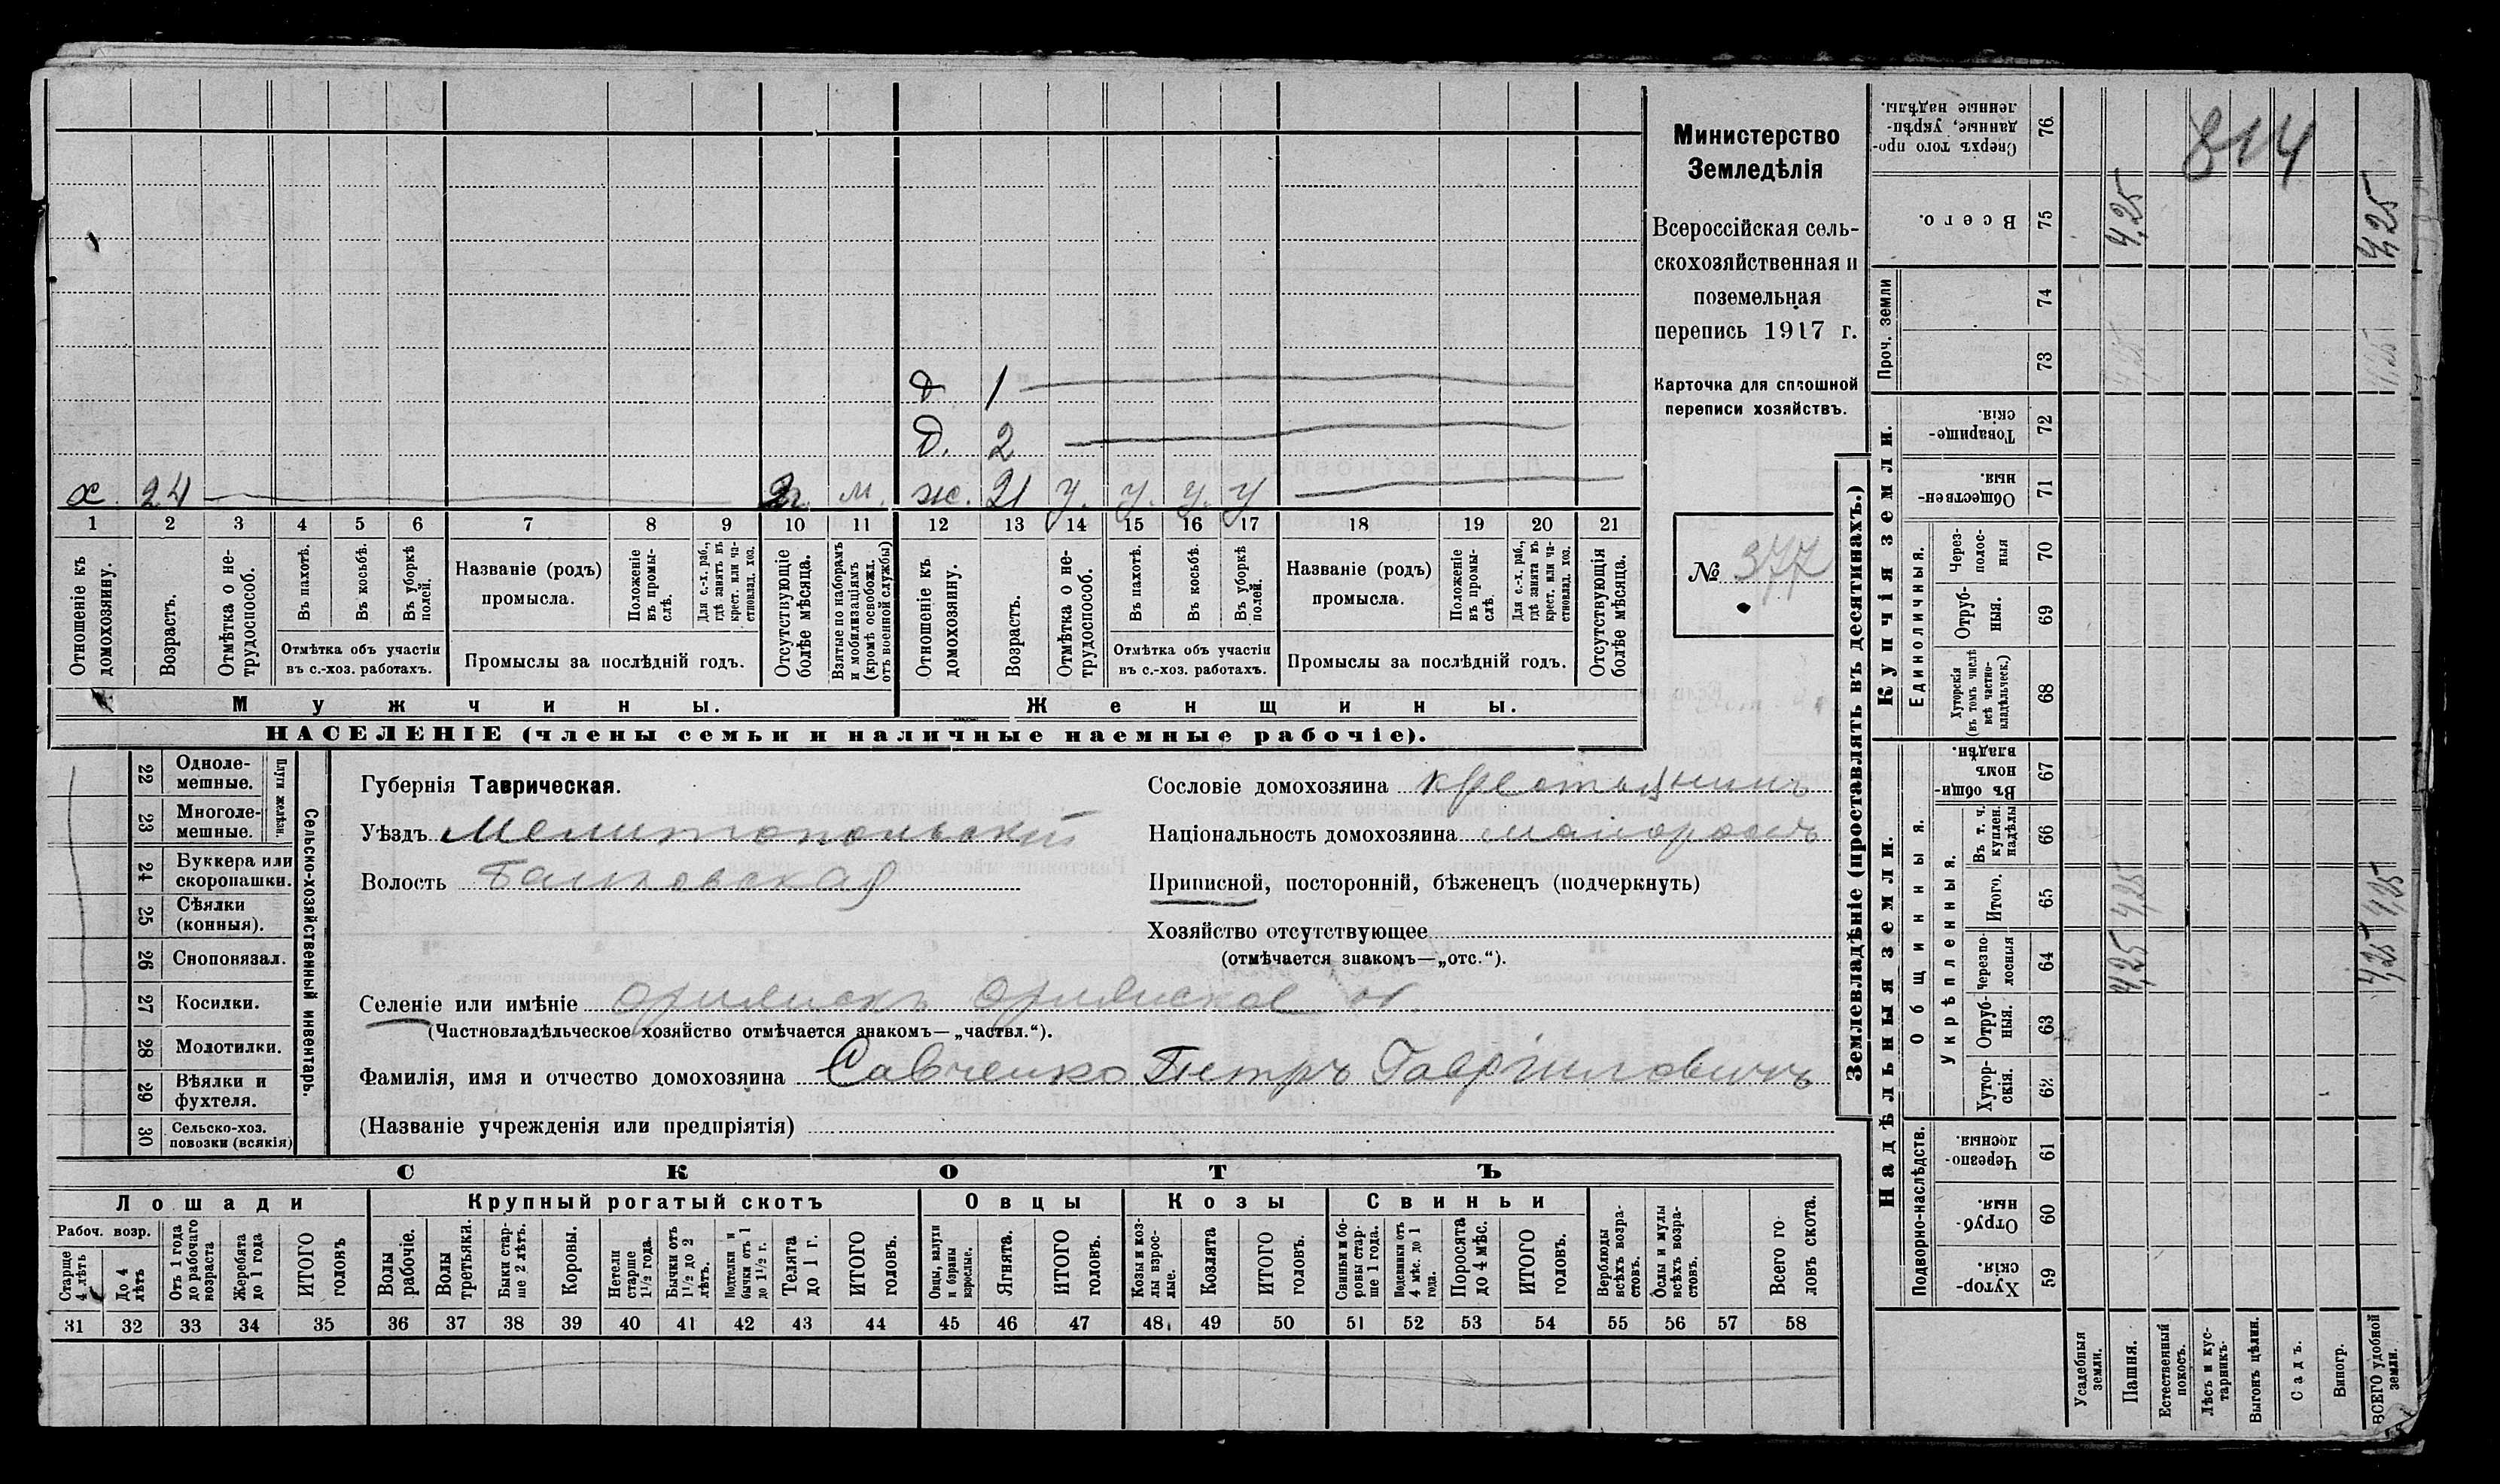 х. 24 2г. м. ж. 21 у. у. у. у
Д. 2
д 1
1 2 3 4 5 6 7 8 9 10 11 12 13 14 15 16 17 18 19 20 21
Отношеніе къ домохозяину.
Возрастъ.
Отмѣтка о не-
трудоспособ.
Въ пахотѣ.
Въ косьбѣ.
Въ уборкѣ полей.
Отмѣтка объ участіи
въ с.-хоз. работахъ.
Названіе (родъ)
промысла.
Положеніе въ промы-
слѣ.
Для с.-х. раб., гдѣ занятъ въ крест. или ча-
стновлад. хоз.
Промыслы за послѣдній годъ.
Отсутствующіе болѣе мѣсяца.
Взятые по наборамъ и мобилизаціямъ (кромѣ освобожд. отъ военной службы)
Отношеніе къ домохозяину.
Возрастъ.
Отмѣтка о не-
трудоспособ.
Въ пахотѣ.
Въ косьбѣ.
Въ уборкѣ полей.
Отмѣтка объ участіи
въ с.-хоз. работахъ.
Названіе (родъ)
промысла.
Положеніе въ промы-
слѣ.
Для с.-х. раб., гдѣ занята въ крест. или ча-
стновлад. хоз.
Промыслы за послѣдній годъ.
Отсутствующія болѣе мѣсяца.
Мужчины.
Женщины.
НАСЕЛЕНІЕ (члены семьи и наличные наемные рабочіе).
Министерство
Земледѣлія
Всероссійская сель-
скохозяйственная и
поземельная
перепись 1917 г.
Карточка для сплошной
переписи хозяйствъ.
№ 377
22 Одноле-
мешные.
23 Многоле-
мешные.
Плуги желѣзн.
24 Буккера или
скоропашки.
25 Сѣялки
(конныя).
26 Сноповязал.
27 Косилки.
28 Молотилки.
29 Вѣялки и
фухтеля.
30 Сельско-хоз.
повозки (всякія)
Сельско-хозяйственный инвентарь.
Губернія Таврическая.
Уѣздъ Мелитопольскій
Волость Балковская
Сословіе домохозяина крестьянинъ
Національность домохозяина малороссъ
Приписной, посторонній, бѣженецъ (подчеркнуть)
Хозяйство отсутствующее
(отмѣчается знакомъ—„отс.“).
Селеніе или имѣніе
(Частновладѣльческое хозяйство отмѣчается знакомъ—„частвл.“).
Фамилія, имя и отчество домохозяина Савченко Петръ Гавріиловичъ
(Названіе учрежденія или предпріятія)
СКОТЪ
Лошади
Крупный рогатый скотъ
Овцы
Козы
Свиньи
Рабоч. возр.
Старше 4 лѣтъ
До 4 лѣтъ
Отъ 1 года до рабочаго возраста
Жеребята до 1 года
ИТОГО головъ
Волы рабочіе.
Волы третьяки.
Быки стар-
ше 2 лѣтъ.
Коровы.
Нетели старше 1½ года.
Бычки отъ 1½ до 2 лѣтъ.
Подтелки и бычки отъ 1 до 1½ г.
Телята до 1 г.
ИТОГО головъ.
Овцы, валухи и бараны взрослые.
Ягнята.
ИТОГО головъ.
Козы и коз-
лы взрос-
лые.
Козлята
ИТОГО головъ.
Свиньи и бо-
ровы стар-
ше 1 года.
Подсвинки отъ 4 мѣс. до 1 года.
Поросята до 4 мѣс.
ИТОГО головъ.
Верблюды всѣхъ возра-
стовъ.
Ослы и мулы всѣхъ возра-
стовъ.
Всего го-
ловъ скота.
31 32 33 34 35 36 37 38 39 40 41 42 43 44 45 46 47 48 49 50 51 52 53 54 55 56 57 58
Землевладѣніе (проставлять въ десятинахъ.)
Надѣльныя земли.
Купчія земли.
Проч. земли
Подворно-наслѣдств.
Общинныя.
Укрѣпленныя.
Единоличныя.
Хутор-
скія. 59
Отруб-
ныя. 60
Черезпо-
лосныя. 61
Хутор-
скія. 62
Отруб-
ныя. 63
Черезпо-
лосныя 64
Итого. 65
Въ т. ч. куплен. надѣлы 66
Въ общи-
номъ владѣн. 67
Хуторскія (въ томъ числѣ всѣ частно-
владѣльческ.) 68
Отруб-
ныя. 69
Через-
полос-
ныя 70
Обществен-
ныя. 71
Товарище-
скія. 72
73
74
Всего. 75
Сверхъ того про-
данные, укрѣп-
ленные надѣлы. 76
Усадебныя земли.
Пашня. 4,25 4,25 4,25 4,25
Естественный покосъ.
Лѣсъ и кус-
тарникъ.
Выгонъ цѣлин.
Садъ.
Виногр.
ВСЕГО удобной земли. 4,25 4,25 4,25 4,25
814